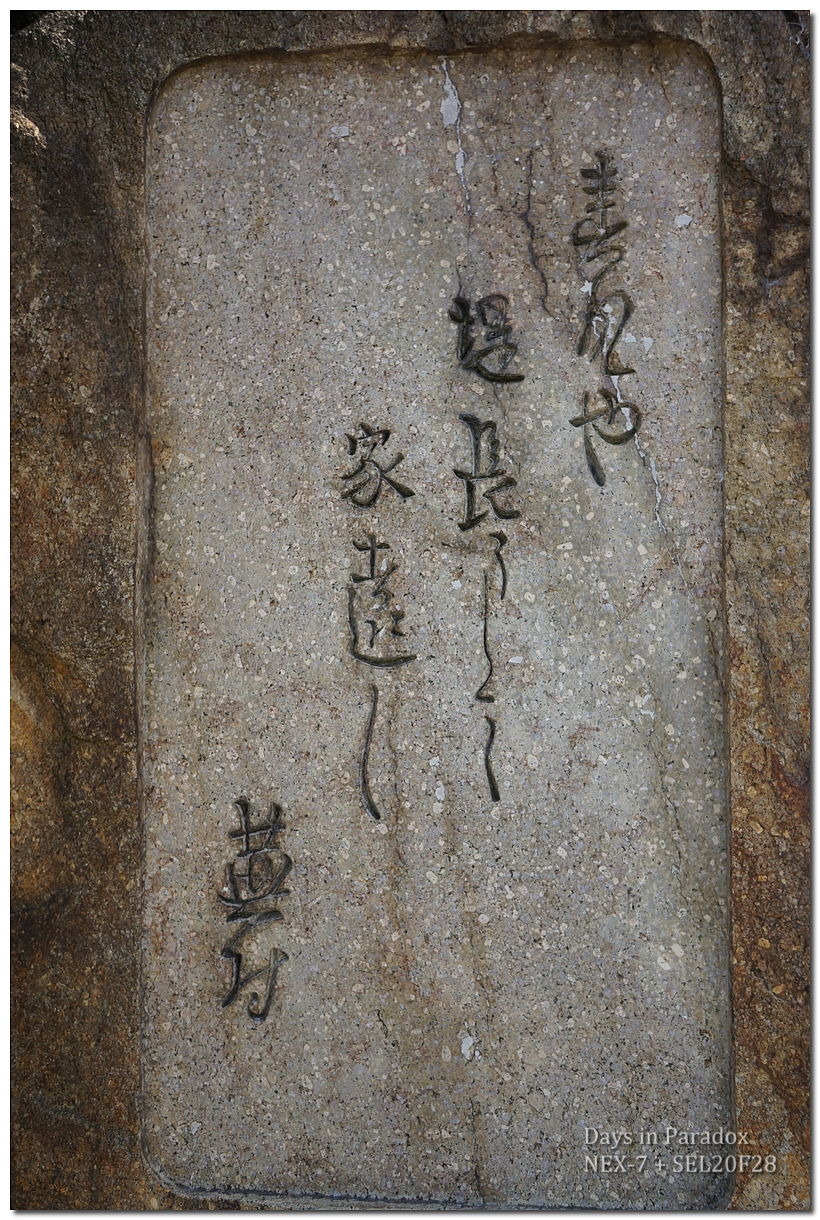 春風や
堤長うして
家遠し
蕪村
Days in Paradox
NEX-7 + SEL20F28